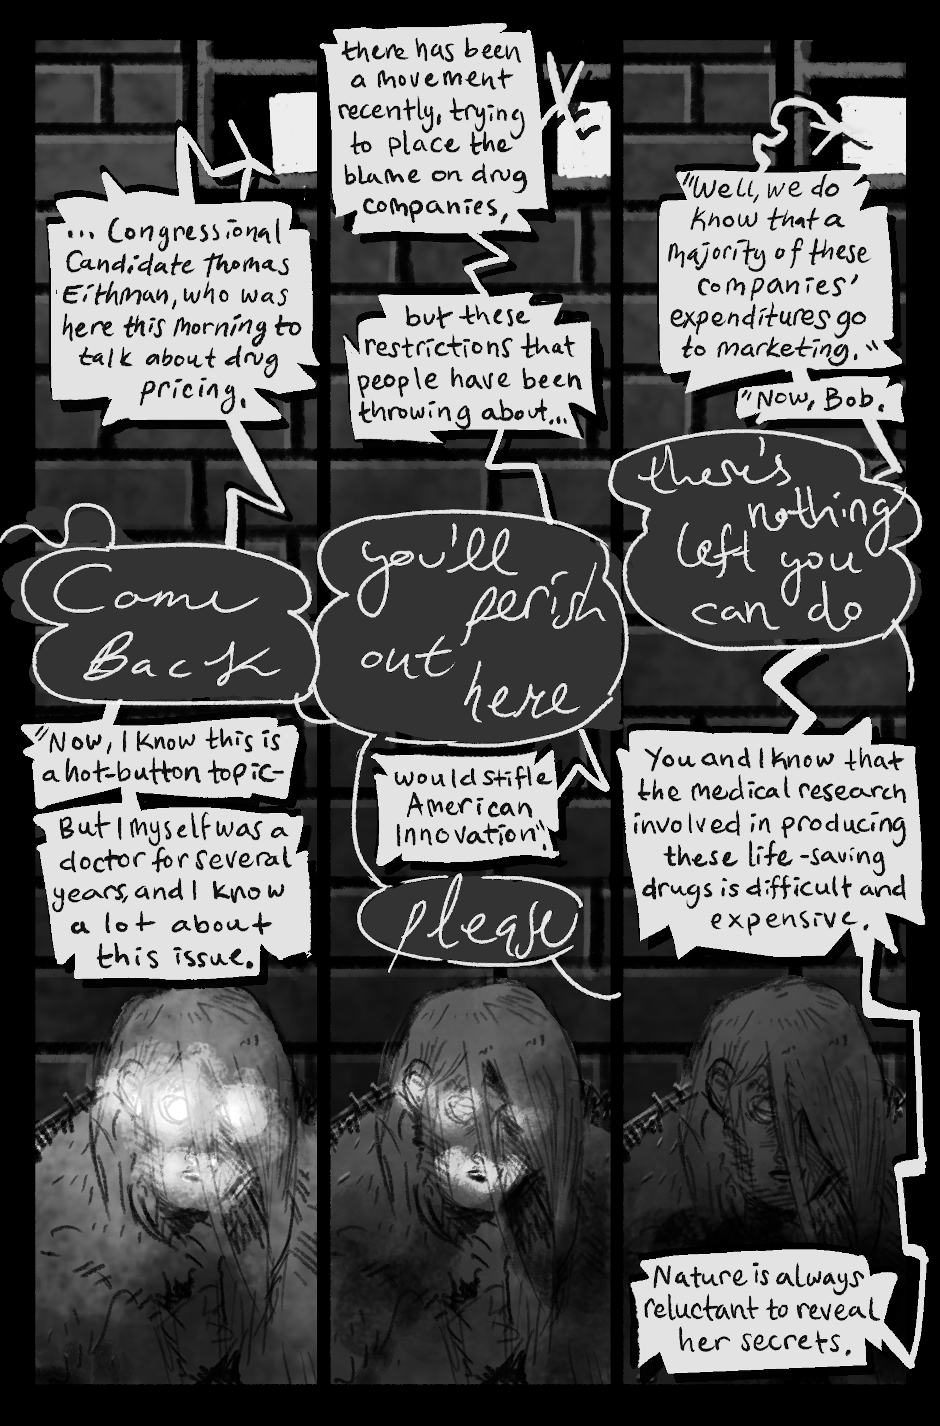 ... Congressional
Candidate Thomas
Eithman, who was
here this morning to
talk about drug
pricing.
Come
Back
"Now, I know this is
a hot-button topic-
But I myself was a
doctor for several
years, and I know
a lot about
this issue.
there has been
a movement
recently, trying
to place the
blame on drug
companies,
but these
restrictions that
people have been
throwing about...
you'll
perish
out
here
would stifle
American
Innovation".
please
"Well, we do
know that a
majority of these
companies'
expenditures go
to marketing."
"Now, Bob.
there's
nothing
left you
can do
You and I know that
the medical research
involved in producing
these life-saving
drugs is difficult and
expensive.
Nature is always
reluctant to reveal
her secrets.